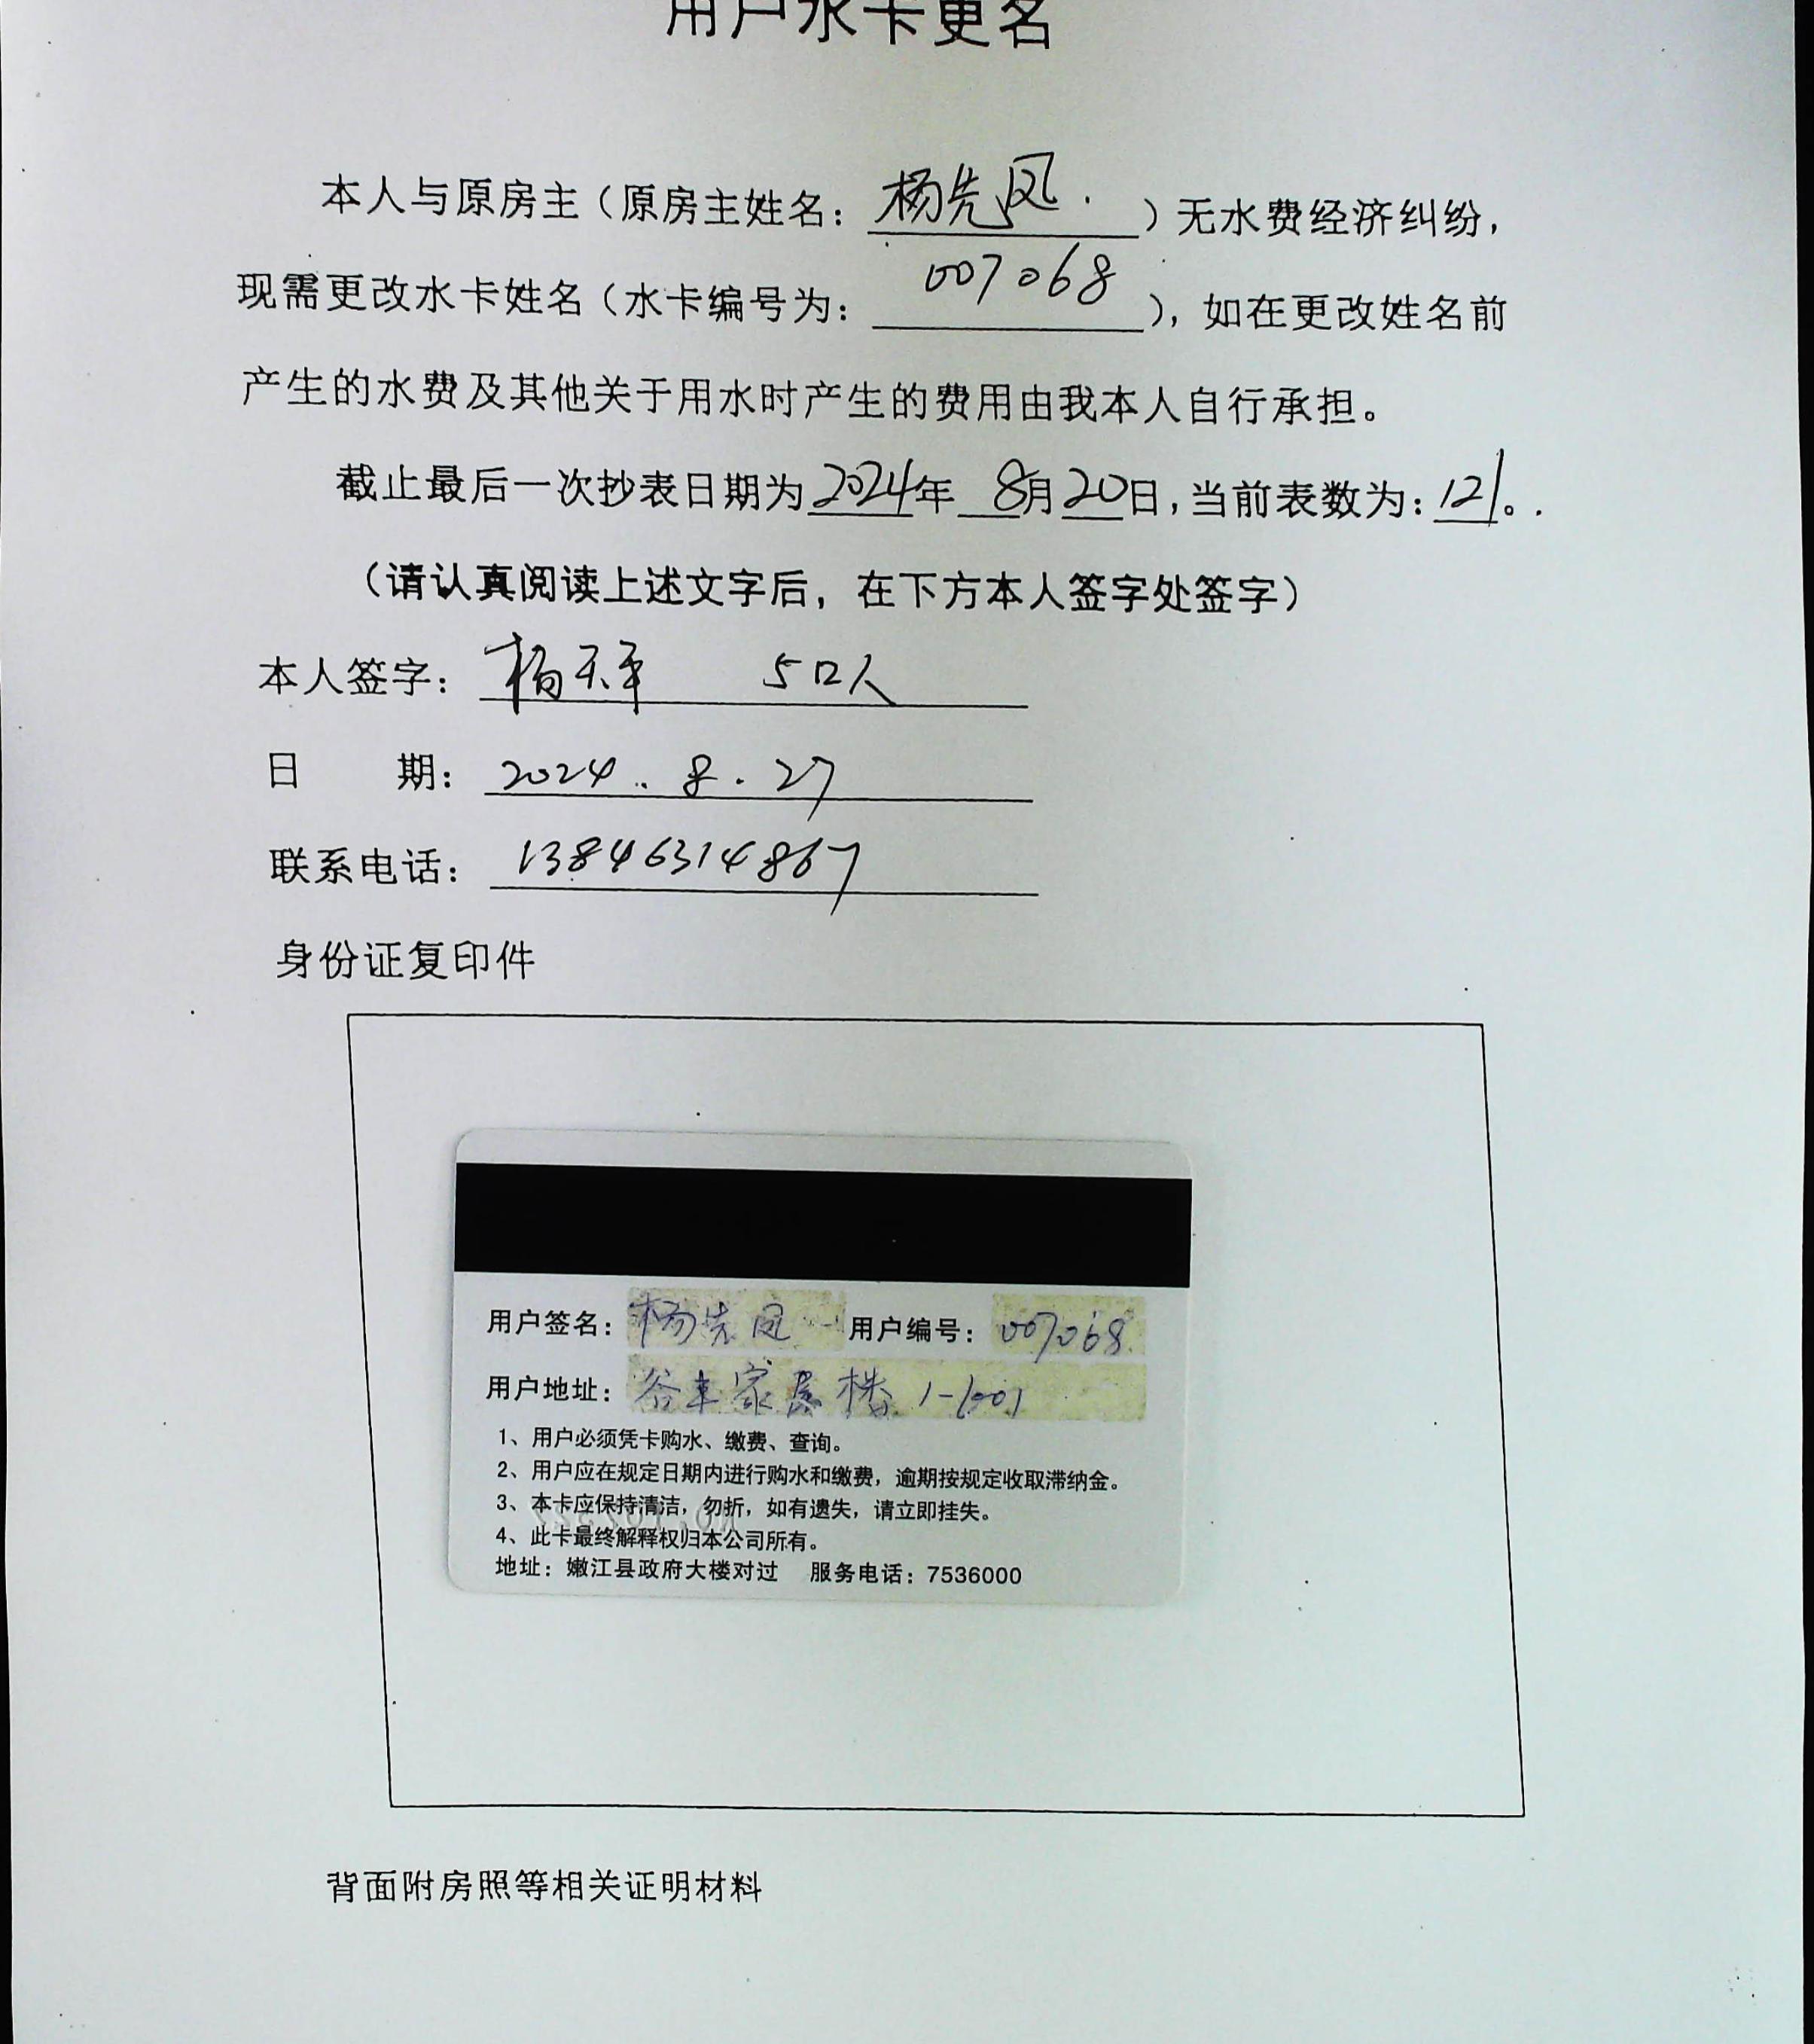 用户水卡更名
本人与原房主（原房主姓名：杨先凤）无水费经济纠纷，
现需更改水卡姓名（水卡编号为：007068），如在更改姓名前
产生的水费及其他关于用水时产生的费用由我本人自行承担。
截止最后一次抄表日期为2024年 8月20日，当前表数为：121。
（请认真阅读上述文字后，在下方本人签字处签字）
本人签字：杨天平 5口人
日 期：2024.8.27
联系电话：13846314867
身份证复印件
用户签名：杨先凤 用户编号：007068
用户地址：谷丰家属楼 1-1001
1、用户必须凭卡购水、缴费、查询。
2、用户应在规定日期内进行购水和缴费，逾期按规定收取滞纳金。
3、本卡应保持清洁，勿折，如有遗失，请立即挂失。
4、此卡最终解释权归本公司所有。
地址：嫩江县政府大楼对过 服务电话：7536000
背面附房照等相关证明材料